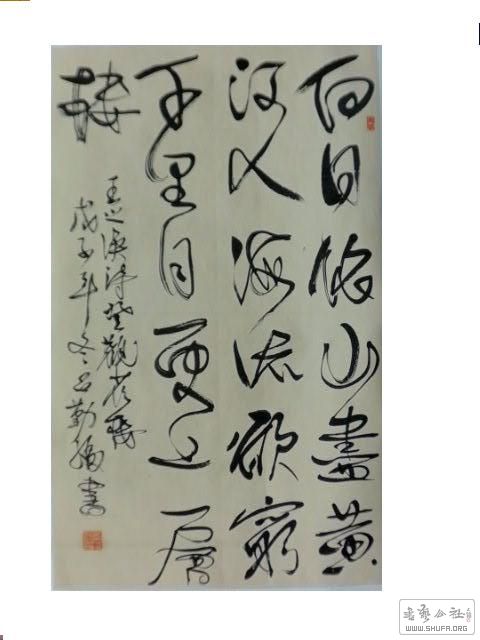 白日依山盡黄
河入海流欲窮
千里目更上一層
樓
王之渙詩登觀雀樓
戊子年冬勤書
书艺公社
WWW.SHUFA.ORG